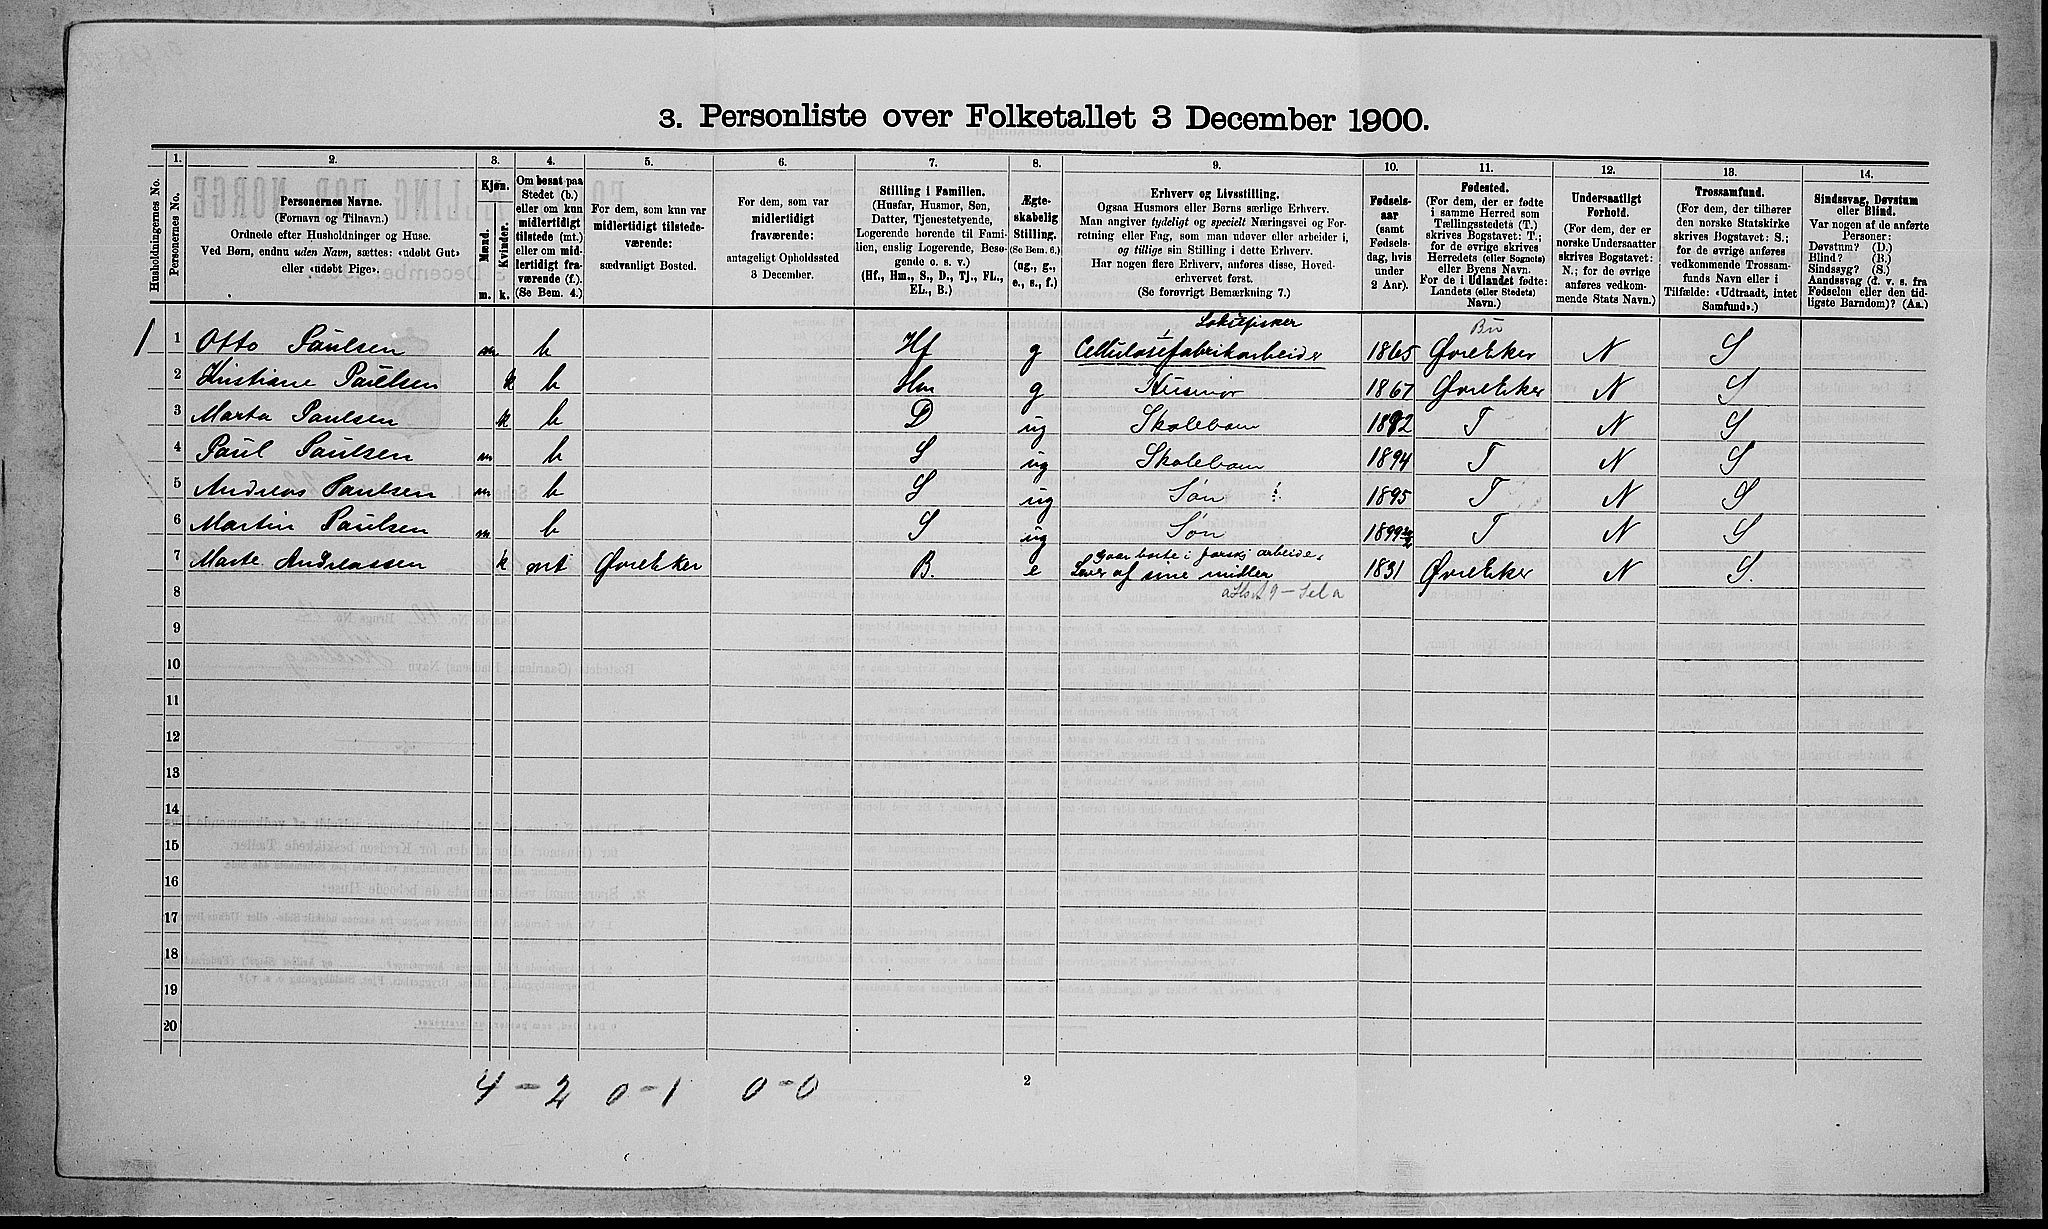 3. Personliste over Folketallet 3 December 1900.
Husholdningernes No.
1.
Personernes No.
2.
Personernes Navne.
(Fornavn og Tilnavn.)
Ordnede efter Husholdninger og Huse.
Ved Børn, endnu uden Navn, sættes: «udøbt Gut»
eller «udøbt Pige».
3.
Kjøn.
Mænd.
Kvinder.
m. k.
4.
Om bosat paa
Stedet (b.)
eller om kun
midlertidigt
tilstede (mt.)
eller om mid-
lertidigt fra-
værende (f.).
(Se Bem. 4.)
5.
For dem, som kun var
midlertidigt tilstede-
værende:
sædvanligt Bosted.
6.
For dem, som var
midlertidigt
fraværende:
antageligt Opholdssted
3 December.
7.
Stilling i Familien.
(Husfar, Husmor, Søn,
Datter, Tjenestetyende,
Logerende hørende til Fami-
lien, enslig Logerende, Besø-
gende o. s. v.)
(Hf., Hm., S., D., Tj., FL.,
EL., B.)
8.
Ægte-
skabelig
Stilling.
(Se Bem. 6.)
(ug., g.,
e., s., f.)
9.
Erhverv og Livsstilling.
Ogsaa Husmors eller Børns særlige Erhverv.
Man angiver tydeligt og specielt Næringsvei og For-
retning eller Fag, som man udøver eller arbeider i,
og tillige sin Stilling i dette Erhverv.
Har nogen flere Erhverv, anføres disse, Hoved-
erhvervet først.
(Se forøvrigt Bemærkning 7.)
10.
Fødsels-
aar
(samt
Fødsels-
dag, hvis
under
2 Aar).
11.
Fødested.
(For dem, der er fødte
i samme Herred som
Tællingsstedets (T.)
skrives Bogstavet: T.;
for de øvrige skrives
Herredets (eller Sognets)
eller Byens Navn.
For de i Udlandet fødte:
Landets (eller Stedets)
Navn.)
12.
Undersaatligt
Forhold.
(For dem, der er
norske Undersaatter
skrives Bogstavet:
N.; for de øvrige
anføres vedkom-
mende Stats Navn.)
13.
Trossamfund.
(For dem, der tilhører
den norske Statskirke
skrives Bogstavet: S.;
for de øvrige anføres
vedkommende Trossam-
funds Navn eller i
Tilfælde: «Udtraadt, intet
Samfund».)
14.
Sindssvag, Døvstum
eller Blind.
Var nogen af de anførte
Personer:
Døvstum? (D.)
Blind? (B.)
Sindssyg? (S.)
Aandssvag (d. v. s. fra
Fødselen eller den tid-
ligste Barndom)? (Aa.)
Laksefisker Bu
1 1 Otto Paulsen m b Hf g Cellulosefabrikarbeider 1865 ØvreEker N S
2 Kristiane Paulsen k b Hm g Husmor 1867 ØvreEker N S
3 Marta Paulsen k b D ug Skolebarn 1892 T N S
4 Paul Paulsen m b S ug Skolebarn 1894 T N S
5 Andreas Paulsen m b S ug Søn 1895 T N S
6 Martin Paulsen m b S ug Søn 1899 T N S
Gaar borte i forskj arbeide,
7 Marte Andreassen k mt ØvreEker B. e Lever af sine midler 1831 ØvreEker N S.
8
9
10
11
12
13
14
15
16
17
18
19
20
4 – 2 0 – 1 0 – 0
2